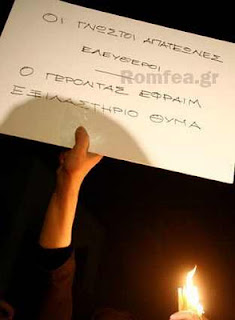 ΟΙ ΓΝΩΣΤΟΙ ΑΠΑΤΕΩΝΕΣ
ΕΛΕΥΘΕΡΟΙ
Romfea.gr
Ο ΓΕΡΟΝΤΑΣ ΕΦΡΑΙΜ
ΕΞΙΛΑΣΤΗΡΙΟ ΘΥΜΑ